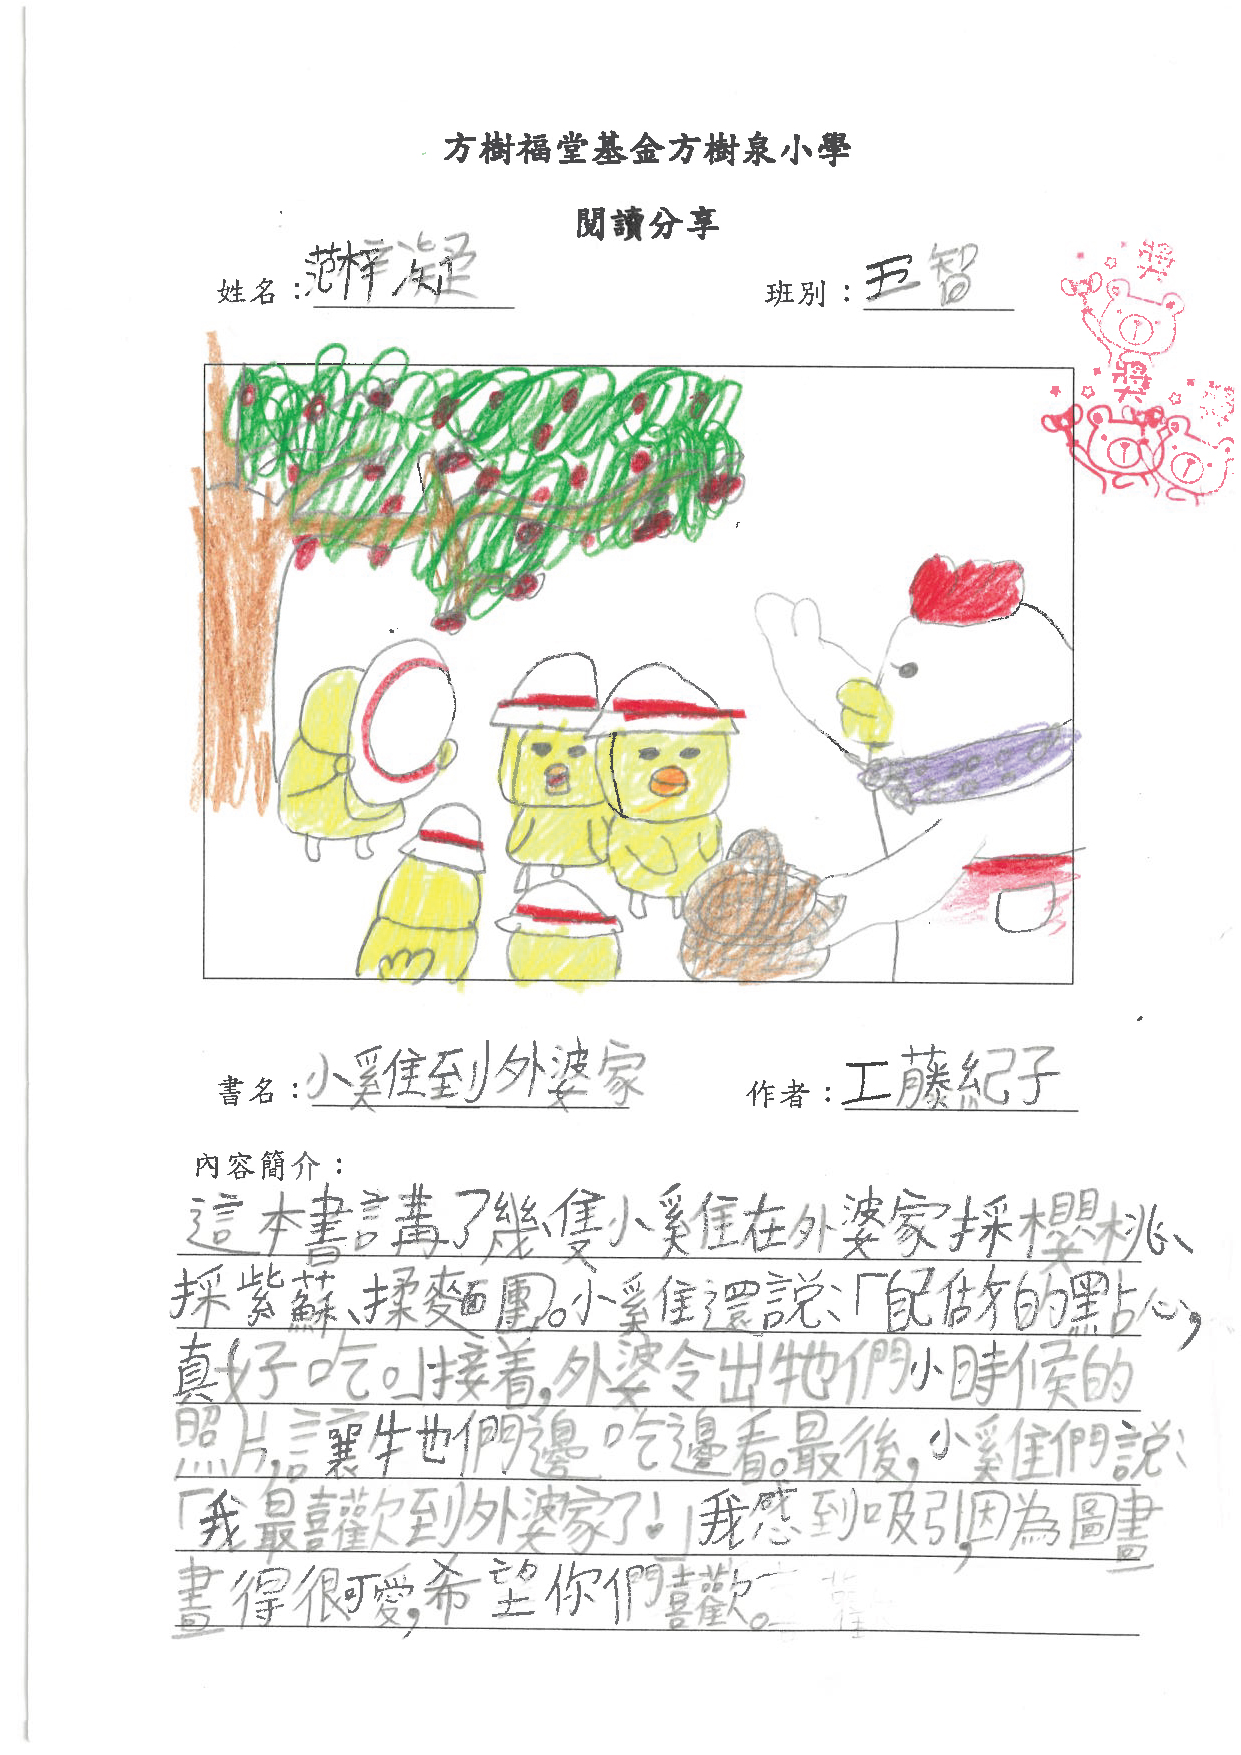 方樹福堂基金方樹泉小學
閱讀分享
姓名：范梓凝
班別：五智
獎
獎
書名：小雞到外婆家
作者：工藤紀子
內容簡介：
這本書講了幾隻小雞在外婆家採櫻桃、
採紫蘇、揉麵團。小雞還說：「自己做的點心，
真好吃。」接着，外婆令出牠們小時候的
照片，讓牠們邊吃邊看。最後，小雞們說：
「我最喜歡到外婆家了！」我感到吸引，因為圖畫
畫得很可愛，希望你們喜歡。